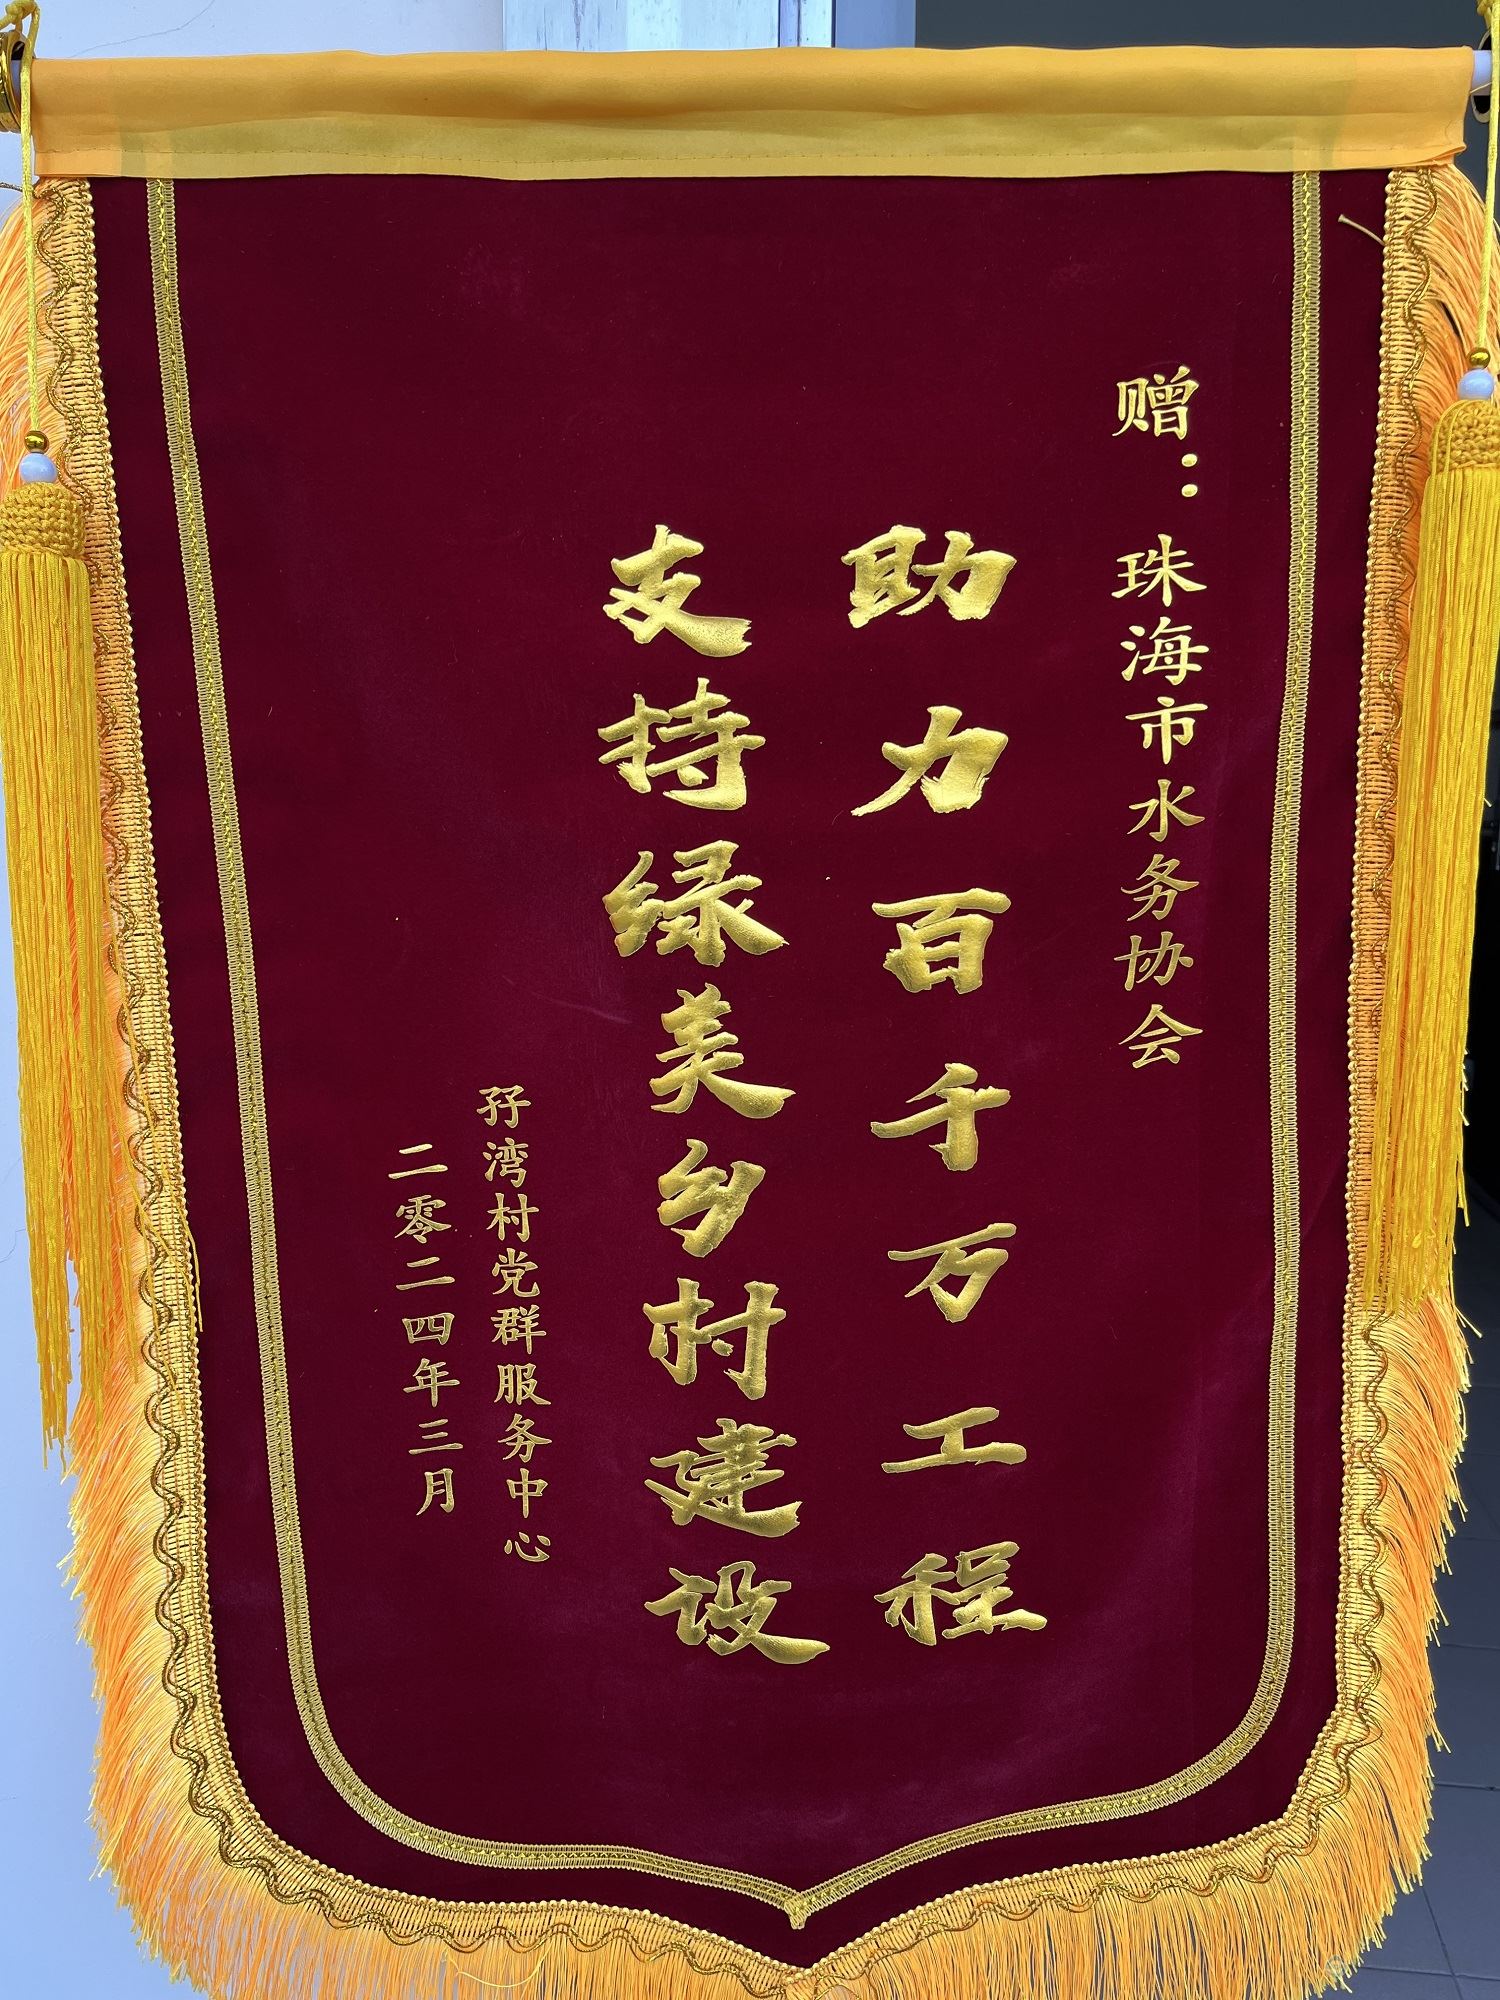 赠：珠海市水务协会
助力百千万工程
支持绿美乡村建设
孖湾村党群服务中心
二零二四年三月